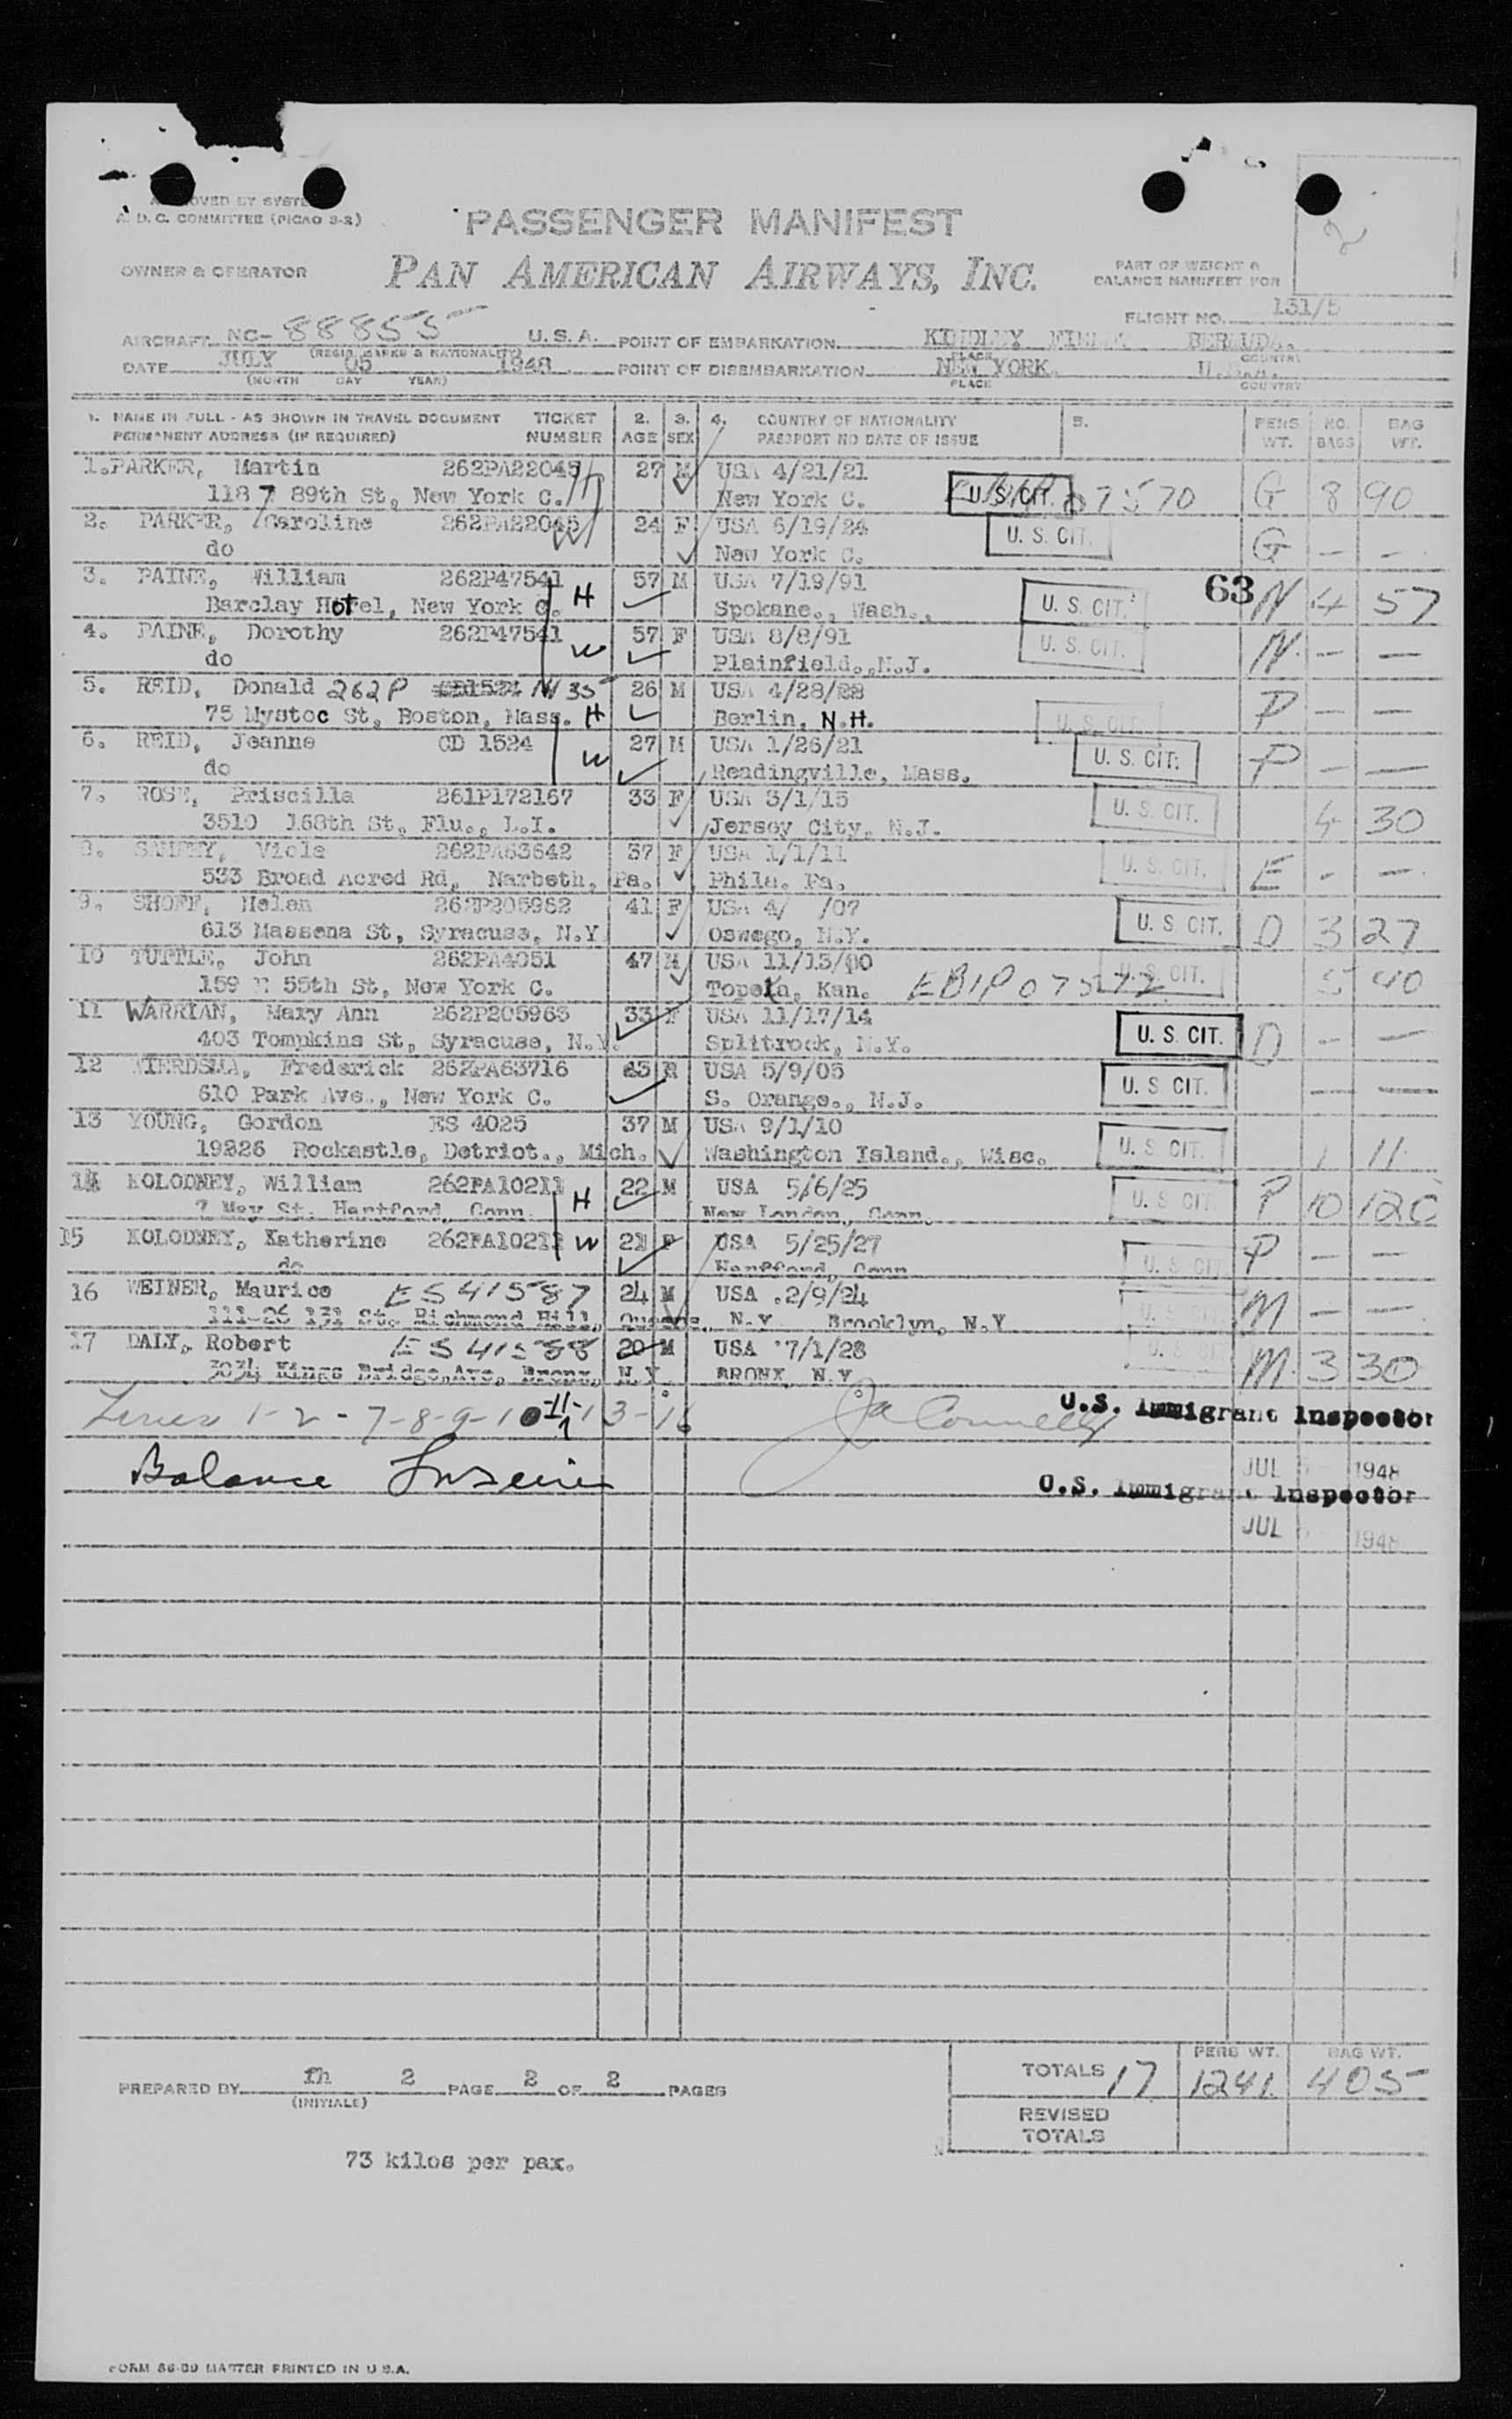 A. D. C. COMMITTEE (PICAO 3-2)
PASSENGER MANIFEST
OWNER & OPERATOR
PAN AMERICAN AIRWAYS, INC.
PART OF WEIGHT &
BALANCE MANIFEST FOR
FLIGHT NO. 131/5
AIRCRAFT NC- 88855 U.S.A. POINT OF EMBARKATION KINDLEY BERMUDA.
(REGIS. MARKS & NATIONALITY) PLACE COUNTRY
DATE JULY 05 1948 POINT OF DISEMBARKATION NEW YORK U.S.A.
(MONTH DAY YEAR) PLACE COUNTRY
1. NAME IN FULL - AS SHOWN IN TRAVEL DOCUMENT TICKET 2. 3. 4. COUNTRY OF NATIONALITY 5. PERS NO. BAG
PERMANENT ADDRESS (IF REQUIRED) NUMBER AGE SEX PASSPORT NO DATE OF ISSUE WT. BAGS WT.
1. PARKER, Martin 262PA22045 27 M USA 4/21/21
1187 89th St, New York C. H New York C. U.S. CIT. 07570 G 8 90
2. PARKER, Caroline 262PA22045 24 F USA 6/19/24 U. S. CIT.
do W New York C. G — —
3. PAINE, William 262P47541 57 M USA 7/19/91 63 N 4 57
Barclay Hotel, New York C. H Spokane., Wash., U. S. CIT.
4. PAINE, Dorothy 262P47541 57 F USA 8/8/91 U. S. CIT.
do W Plainfield.,N.J. N — —
5. REID, Donald 262P N 35 26 M USA 4/28/22
75 Mystoc St, Boston, Mass. H Berlin, N.H. U. S. CIT. P — —
6. REID, Jeanne CD 1524 27 M USA 1/26/21 U. S. CIT.
do W Readingville, Mass. P — —
7. ROSE, Priscilla 261P172167 33 F USA 3/1/15 U. S. CIT.
3510 168th St, Flu., L.I. Jersey City, N.J. 4 30
8. Viola 262PA63642 37 F USA 1/1/11 U. S. CIT.
533 Broad Acred Rd, Narbeth, Pa. Phila. Pa. E - —
9. SHOFF, Helen 262P205962 41 F USA 4/ /07 U. S. CIT.
613 Massena St, Syracuse, N.Y Oswego, N.Y. D 3 27
10 TUTTLE, John 262PA4051 47 M USA 11/15/00 U. S. CIT.
159 E 55th St, New York C. Topeka, Kan. EB1P07572 5 40
11 WARRIAN, Mary Ann 262P205963 33 F USA 11/17/14
403 Tompkins St, Syracuse, N.Y. Splitrock, N.Y. U. S. CIT. D — —
12 WIERDSMA, Frederick 262PA63716 M USA 5/9/05 U. S. CIT.
610 Park Ave., New York C. S. Orange., N.J. — —
13 YOUNG, Gordon ES 4025 37 M USA 9/1/10
19226 Rockastle, Detriot., Mich. Washington Island., Wisc. U. S. CIT. 1 11
14 KOLODNEY, William 262PA10211 H 22 M USA 5/6/25 U. S. CIT. P 10 120
7 May St. Hartford, Conn. New London, Conn.
15 KOLODNEY, Katherine 262PA10212 W 21 F USA 5/25/27 U. S. CIT. P — —
do Hartford, Conn
16 WEINER, Maurice ES 41587 24 M USA 2/9/24 U. S. CIT. M — —
111-26 131 St. Richmond Hill, Queens, N.Y Brooklyn, N.Y
17 DALY, Robert ES 41588 20 M USA 7/1/28 U. S. CIT. M 3 30
3034 Kings Bridge,Ave, Bronx, N.Y. BRONX, N.Y
Lines 1-2-7-8-9-10-11-13-16 U.S. Immigrant Inspector
JUL 5 1948
Balance U.S. Immigrant Inspector
JUL 5 1948
PREPARED BY 2 PAGE 2 OF 2 PAGES
(INITIALS)
PERS WT. BAG WT.
TOTALS 17 1241 405
REVISED
TOTALS
73 kilos per pax.
FORM 86-39 MASTER PRINTED IN U S.A.